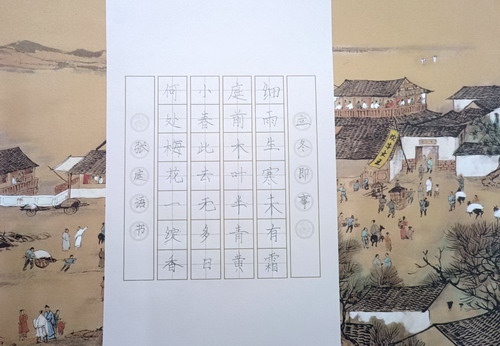 立冬即事
细雨生寒未有霜
庭前木叶半青黄
小春此去无多日
何处梅花一绽香
庭语书